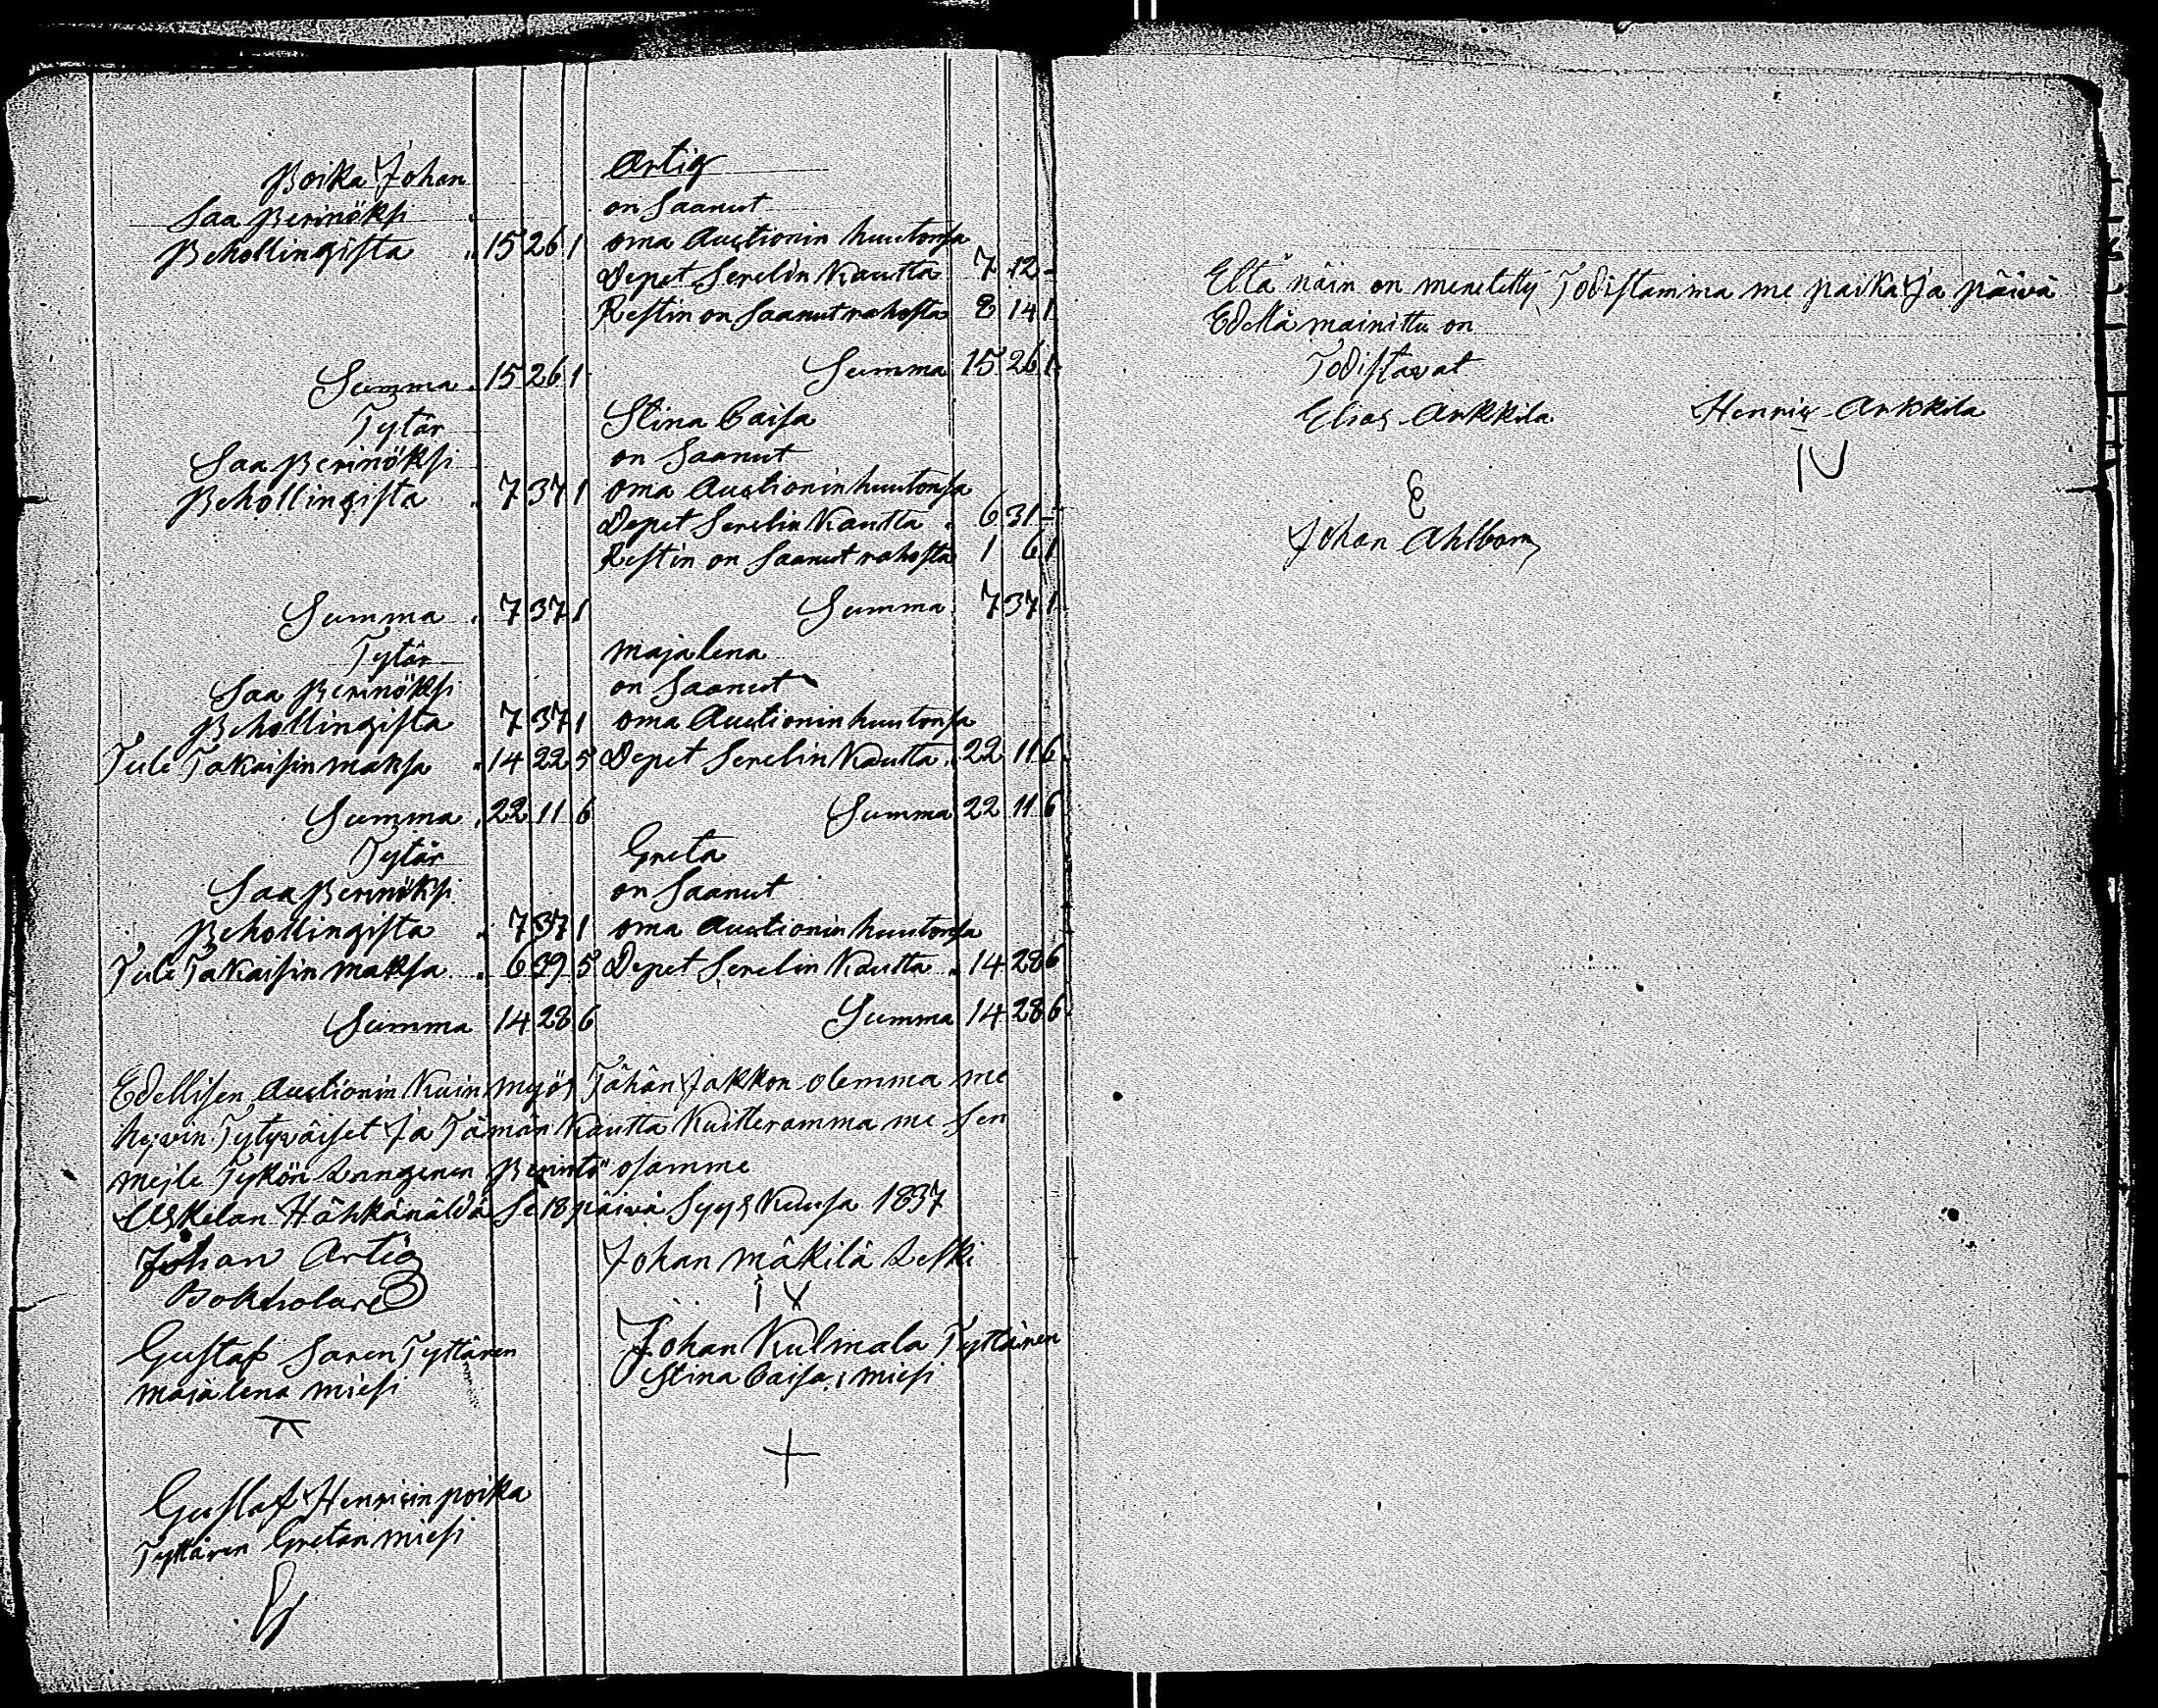 Poika Johan Artig
Saa Perinöksi on Saanut
Behollingista 15 26 1 oma Auctionin huutonsa
Depet Serelin Kautta 7 12 -
Restin on Saanut rahasta 8 14 1
Summa 15 26 1 Summa 15 26 1
Tytär Stina Caisa
Saa Perinöksi on Saanut
Behollingista 7 37 1 oma Auctionin huutonsa
Depet Serelin Kautta 6 31 -
Restin on Saanut rahasta 1 6 1
Summa 7 37 1 Summa 7 37 1
Tytär majalena
Saa Perinöksi on Saanut
Behollingista 7 37 1 oma Auctionin huutonsa
Tule Takaisin maksa 14 22 5 Depet Serelin Kautta 22 11 6
Summa 22 11 6 Summa 22 11 6
Tytär Greta
Saa Perinöksi on Saanut
Behollingista 7 37 1 oma Auctionin huutonsa
Tule Takaisin maksa 6 39 5 Depet Serelin Kautta 14 28 6
Summa 14 28 6 Summa 14 28 6
Edellisen Auctionin Kuin myös Tähän Jakkon olemma me
hyvin Tytyväiset Ja Tämän Kautta Kuitteramma me sen
mejle Tykön Langenen Perintö osamme
Uskelan Hähkänäldä Se 18 päivä Syys Kuusa 1837
Johan Artig Johan mäkilä Leski
Bokholare
Gustaf Saren Tyttären Johan Kulmala Tyttären
majalena miesi Stina Caisa miesi
Gustaf Henricin poika
Tyttären Gretan miesi
Että näin on menetetty Todistamma me paika Ja päivä
Edellä mainittu on
Todistavat
Elias Arkkila Henric Arkkila
E IV
Johan Ahlbom